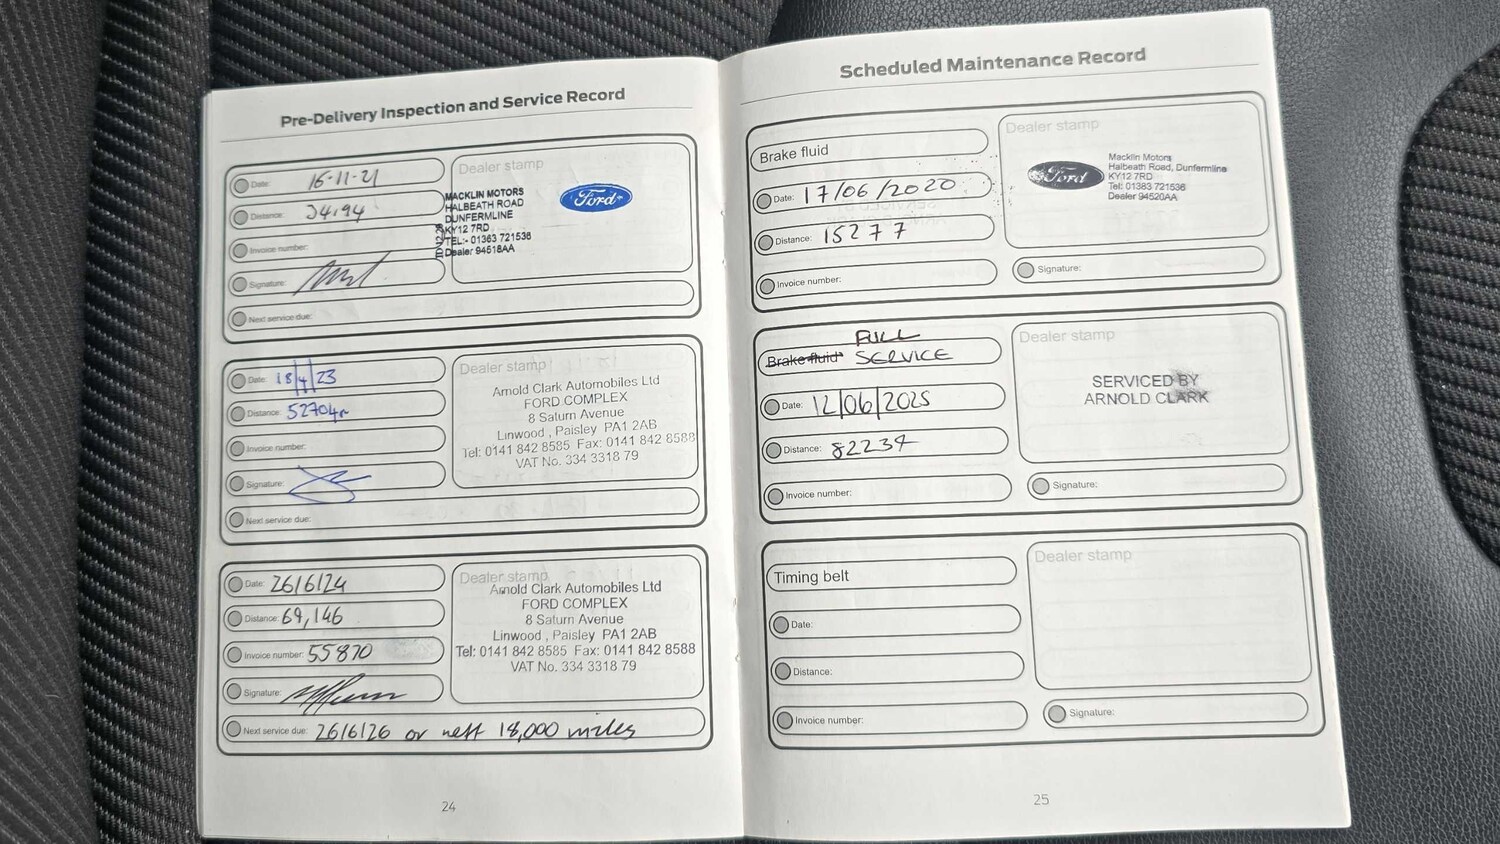 Pre-Delivery Inspection and Service Record
Date: 16-11-21
Distance:
Invoice number:
Signature:
Next service due:
Dealer stamp
MACKLIN MOTORS
HALBEATH ROAD
DUNFERMLINE
KY12 7RD
TEL:- 01383 721536
Dealer 94518AA
Ford
Date: 18/4/23
Distance: 52704m
Invoice number:
Signature:
Next service due:
Dealer stamp
Arnold Clark Automobiles Ltd
FORD COMPLEX
8 Saturn Avenue
Linwood , Paisley PA1 2AB
Tel: 0141 842 8585 Fax: 0141 842 8588
VAT No. 334 3318 79
Date: 26/6/24
Distance: 69,146
Invoice number: 55870
Signature:
Next service due: 26/6/26 or next 18,000 miles
Dealer stamp
Arnold Clark Automobiles Ltd
FORD COMPLEX
8 Saturn Avenue
Linwood , Paisley PA1 2AB
Tel: 0141 842 8585 Fax: 0141 842 8588
VAT No. 334 3318 79
24
Scheduled Maintenance Record
Brake fluid
Date: 17/06/2020
Distance: 15277
Invoice number:
Dealer stamp
Ford
Macklin Motors
Halbeath Road, Dunfermline
KY12 7RD
Tel: 01383 721536
Dealer 94520AA
Signature:
Brake fluid FULL
SERVICE
Date: 12/06/2025
Distance: 82234
Invoice number:
Dealer stamp
SERVICED BY
ARNOLD CLARK
Signature:
Timing belt
Date:
Distance:
Invoice number:
Dealer stamp
Signature:
25